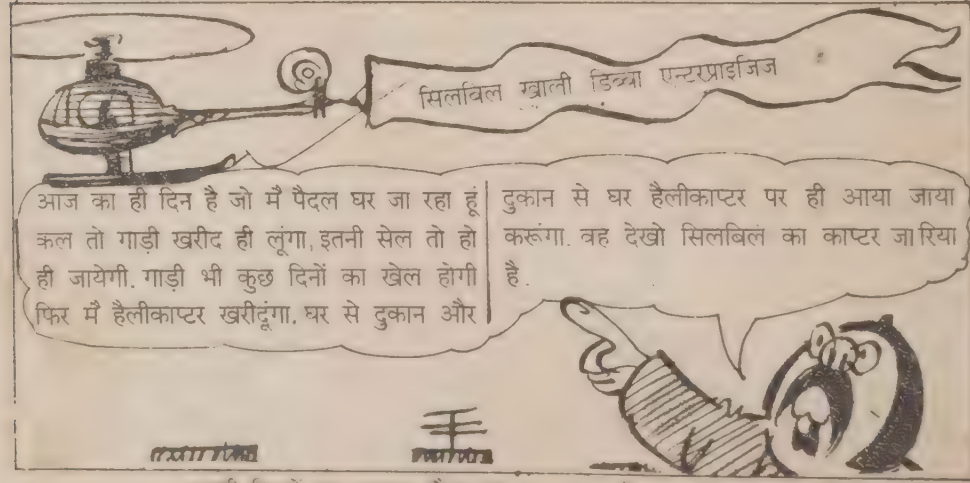 सिलबिल खाली डिब्बा एन्टरप्राइजिज
आज का ही दिन है जो मै पैदल घर जा रहा हूं
कल तो गाड़ी खरीद ही लूंगा, इतनी सेल तो हो
ही जायेगी. गाड़ी भी कुछ दिनों का खेल होगी
फिर मै हैलीकाप्टर खरीदूंगा. घर से दुकान और
दुकान से घर हैलीकाप्टर पर ही आया जाया
करूंगा. वह देखो सिलबिल का काप्टर जा रिया
है.